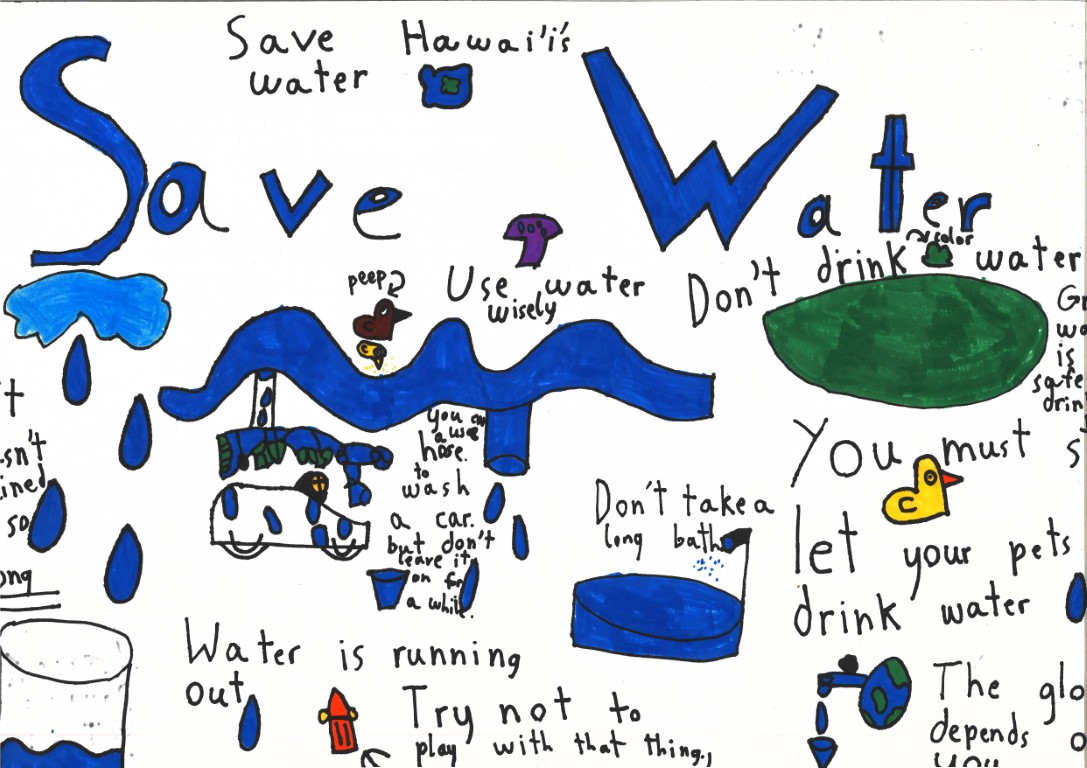 Save Hawai'i's
water
Save Water
peep
Use water
wisely
Don't drink color water
is
safe
drin
You must s
let your pets
drink water
't
sn't
ined
so
ong
you can
use
hose.
to
wash
a car.
but don't
leave it
on for
a while.
Don't take a
long bath
Water is running
out
Try not to
play with that thing,
The glo
depends o
you